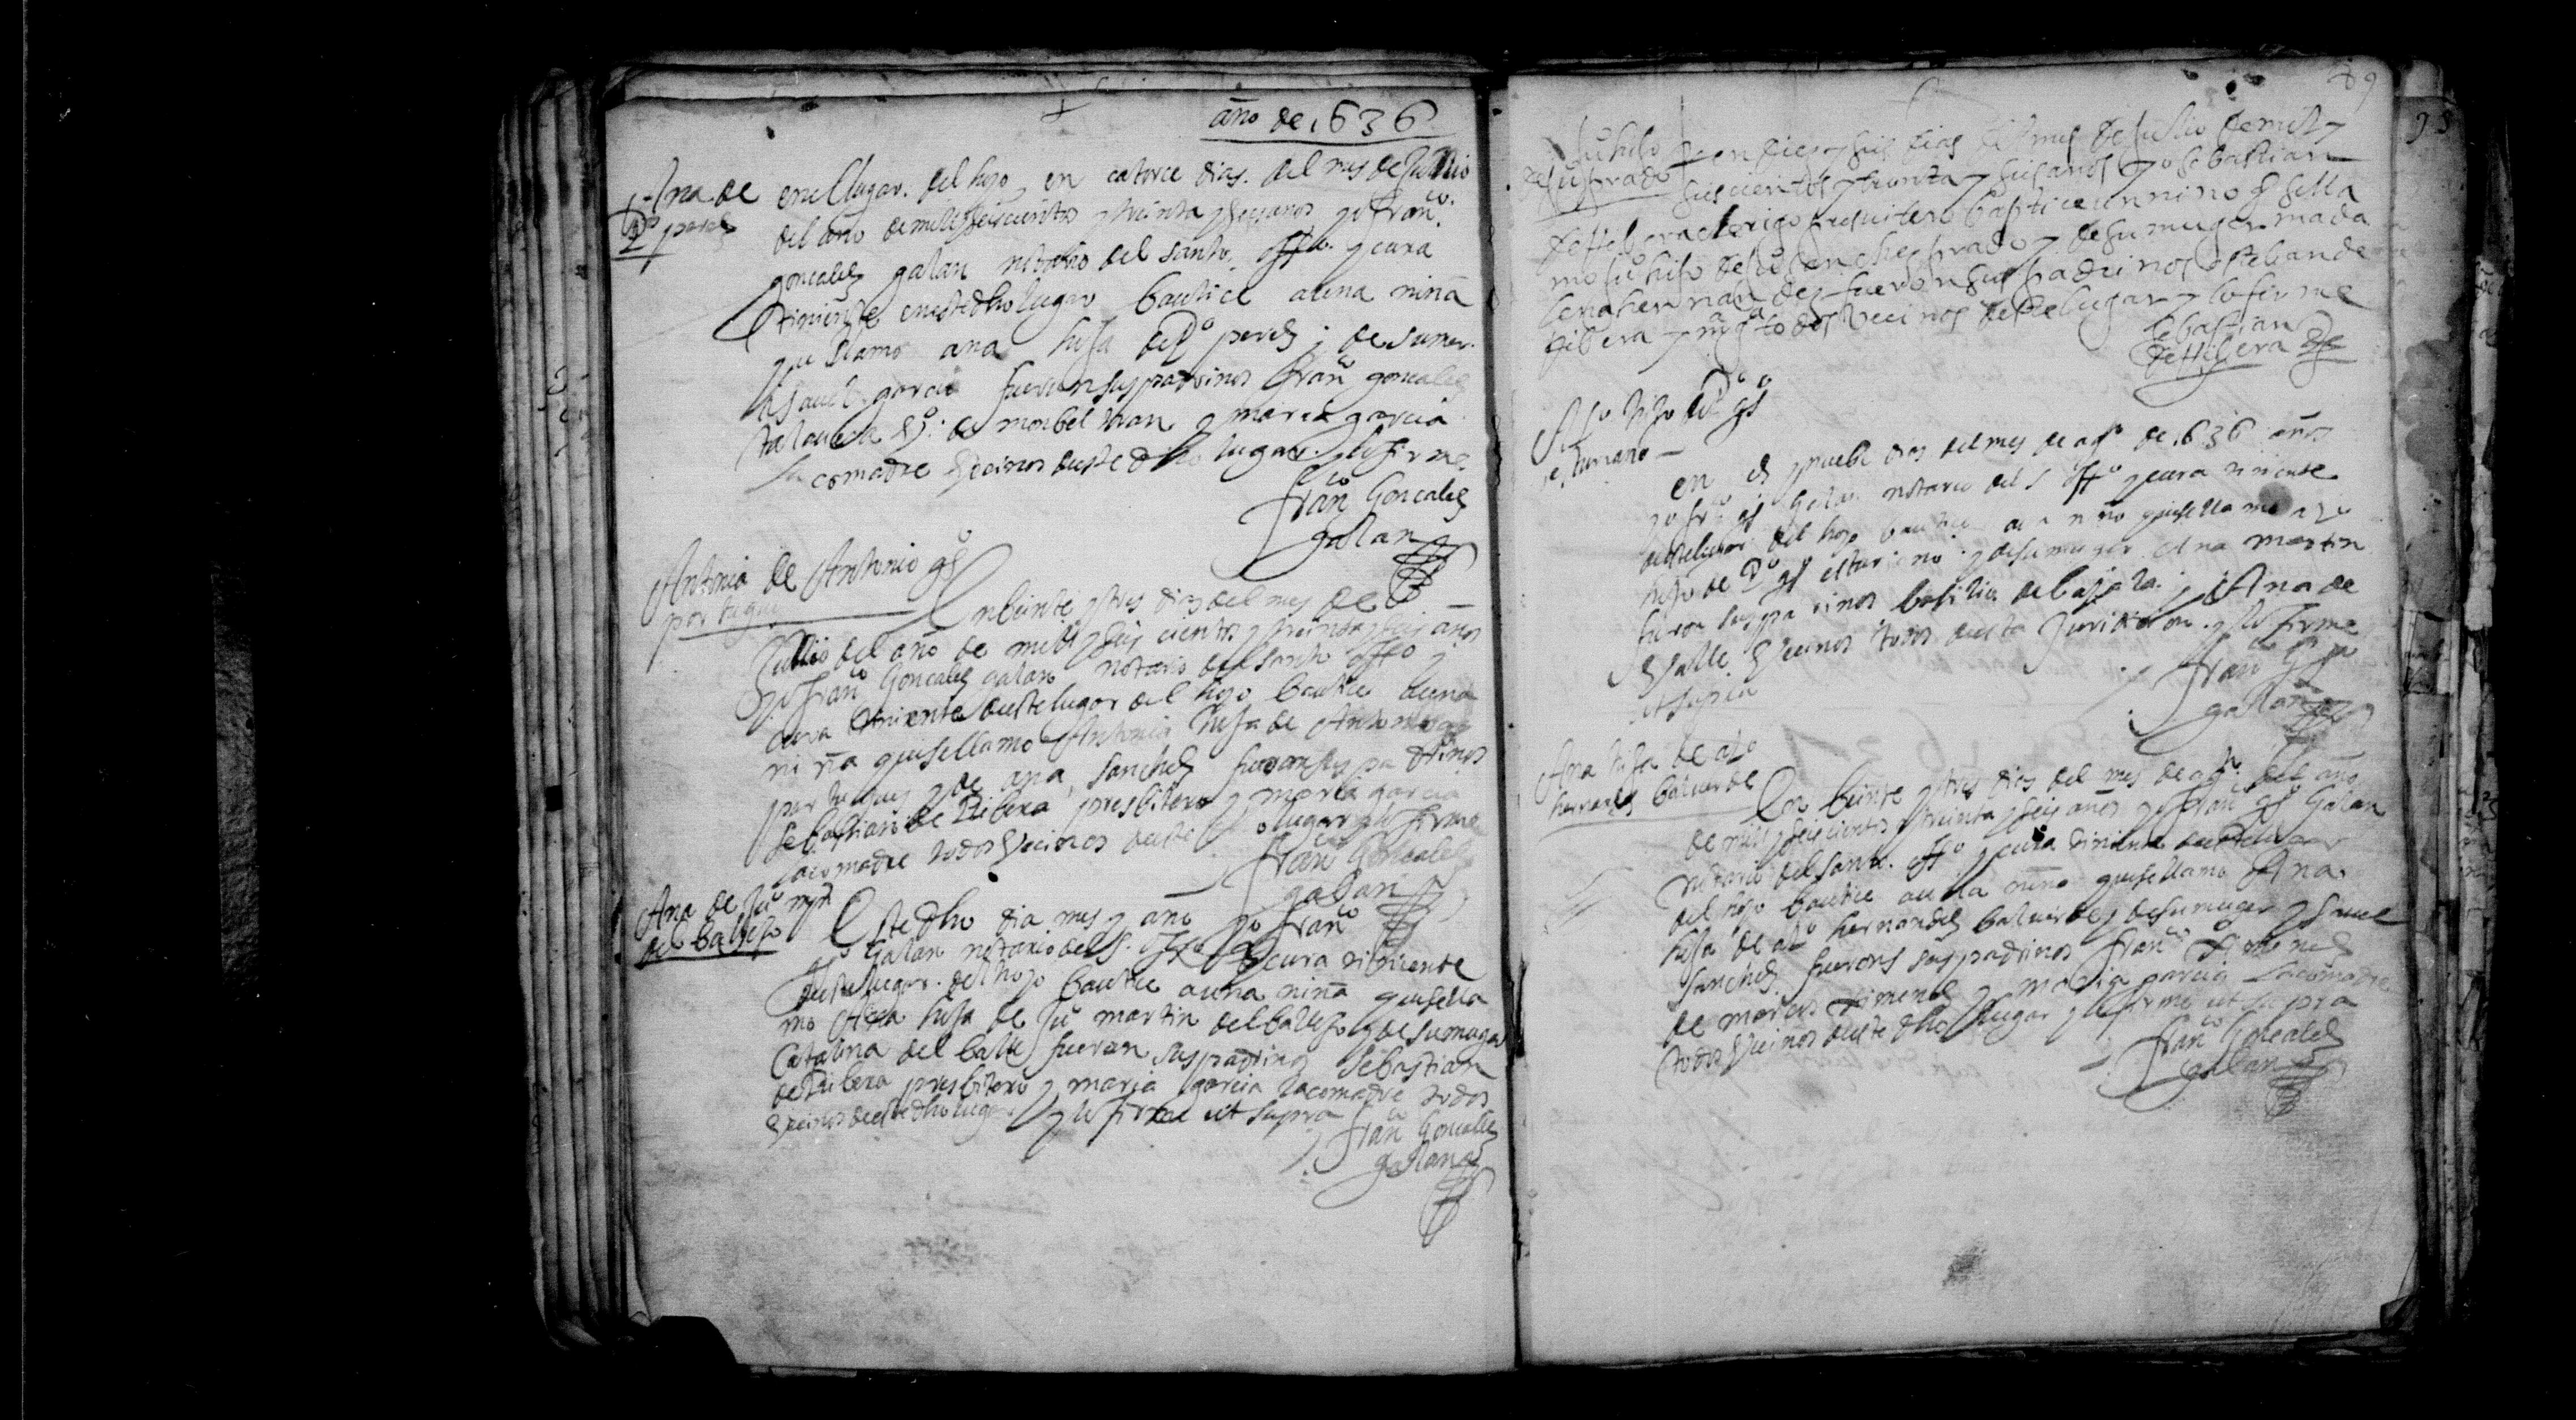 año de 1636
Ana de
Po perez
en el lugar del hoyo en catorce dias del mes de Jullio
del año de mill y seiscientos y treinta y seis años yo franco
goncalez galan notario del santo offo y cura
tiniente en este dho lugar bautice a una niña
que se llamo ana hija de Po perez y de su muger
ysauel garcia fueron sus padrinos franco goncalez
talauera vo de monbeltran y maria garcia
la comadre vecinos deste dho lugar y lo firme
franco Goncalez
galan
Antonia de Antonio gs
portugues
En beinte y tres dias del mes de
Jullio del año de mill y seis cientos y treinta y seis años
yo franco Goncalez galan notario del santo offo y
cura tiniente deste lugar del hoyo bautice a una
niña que se llamo Antonia hija de Antonio gs
portugues y de ana sanchez fueron sus padrinos
sebastian de Ribera presbitero y maria garcia
la comadre todos vecinos deste dho lugar y lo firme
franco Goncalez
galan
Ana de Juo mrn
del ballejo
Este dho dia mes y año yo franco
gs Galan notario del s. offo y cura tiniente
deste lugar del hoyo bautice a una niña que se lla
mo Ana hija de Juo martin del ballejo y de su muger
Catalina del balle fueron sus padrinos sebastian
de Ribera presbitero y maria garcia la comadre todos
vecinos deste dho lugar y lo firme ut supra
franco Goncalez
galan
89
Juo hijo
de Ju prado
en diez y seis dias del mes de Julio de mil y
seis cientos y treinta y seis años yo sebastian
de Ribera clerigo presuitero baptice un nino q se lla
mo Juo hijo de Ju sanchez prado y de su muger mada
lena hernandez fueron sus padrinos esteban de
Ribera y ma todos vecinos deste lugar y lo firme
Sebastian
de Ribera
Alo hijo de Po gs
esturiano
en diez y nuebe dias del mes de agto de 1636 años
yo franco gs Galan notario del s offo y cura tiniente
deste lugar del hoyo bautice a un niño que se llamo alo
hijo de Po gs esturiano y de su muger Ana martin
fueron sus padrinos basilio de bajala y Ana de
el balle vecinos todos desta juridicion y lo firme
ut supra
franco gs
galan
Ana hija de alo
hernandez balverde
En beinte y tres dias del mes de agto del año
de mill y seiscientos y treinta y seis años yo franco gs Galan
notario del santo offo y cura tiniente deste lugar
del hoyo bautice a una niña que se llamo Ana
hija de alo hernandez balverde y de su muger ysauel
sanchez fueron sus padrinos franco ximenez
de marcos ximenez y maria garcia la comadre
todos vecinos deste dho lugar y lo firme ut supra
franco Goncalez
galan